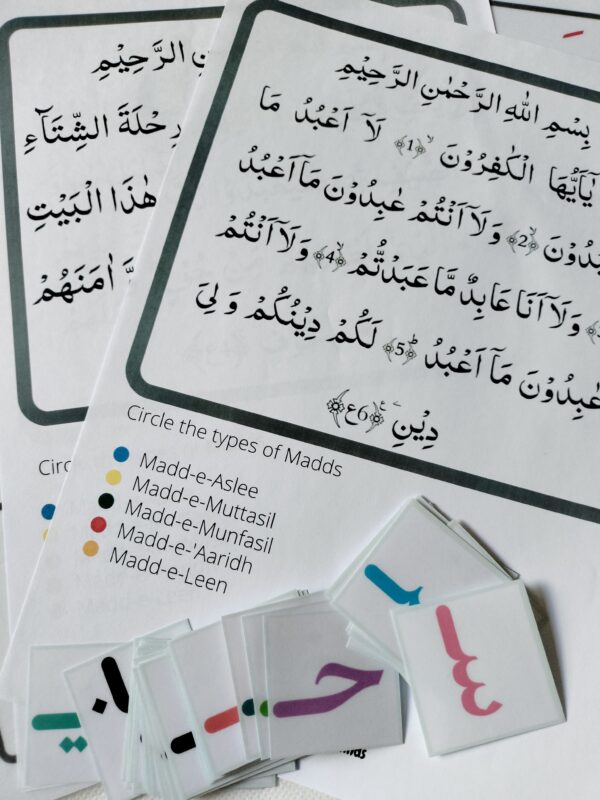 بِسْمِ اللهِ الرَّحْمٰنِ الرَّحِيْمِ
يٰٓاَيُّهَا الْكٰفِرُوْنَ ﴿1﴾ۙ لَآ اَعْبُدُ مَا
﴿2﴾ۙ وَلَآ اَنْتُمْ عٰبِدُوْنَ مَآ اَعْبُدُ
وَلَآ اَنَا عَابِدٌ مَّا عَبَدْتُّمْ ﴿4﴾ۙ وَلَآ اَنْتُمْ
عٰبِدُوْنَ مَآ اَعْبُدُ ﴿5﴾ؕ لَكُمْ دِيْنُكُمْ وَ لِيَ
دِيْنِ ﴿6﴾
Circle the types of Madds
Madd-e-Aslee
Madd-e-Muttasil
Madd-e-Munfasil
Madd-e-'Aaridh
Madd-e-Leen
الرَّحِيْمِ
رِحْلَةَ الشِّتَآءِ
هٰذَا الْبَيْتِ
اٰمَنَهُمْ